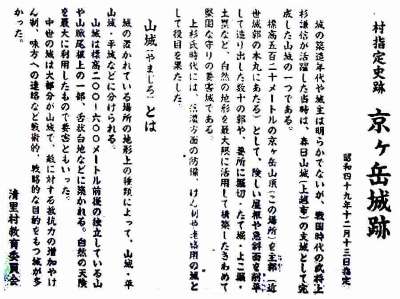 村指定史跡 京ヶ岳城跡
昭和四十九年十二月十三日指定
城の築造年代や城主は明らかでないが、戦国時代の武将上
杉謙信が活躍した当時は、春日山城(上越市)の支城として完
成した山城の一つである。
標高五百二十メートルの京ヶ岳山頂(この場所)を主郭(近
世城郭の本丸にあたる)として、険しい屋根や急斜面を削平
して造り出した数十の郭や、要所に堀切・たて堀・よこ堀・
土塁など、自然の地形を最大限に活用して構築したきわめて
堅固な守りの要害城である。
上杉氏時代には、信濃方面の防備、けん制や連絡用の城と
して役目を果たした。
山城(やましろ)とは
城の築かれている場所の地形上の種類によって、山城・平
山城・平城などに分けられる。
山城は標高二〇〇〜六〇〇メートル前後の独立している山
や山脈尾根上の一部、舌状台地などに築かれる。自然の天険
を最大に利用したもので要害ともいった。
中世の城は大部分が山城で、敵に対する抵抗力の増加やけ
ん制、味方への連絡など戦術的、戦略的な目的をもつ城が多
かった。
清里村教育委員会